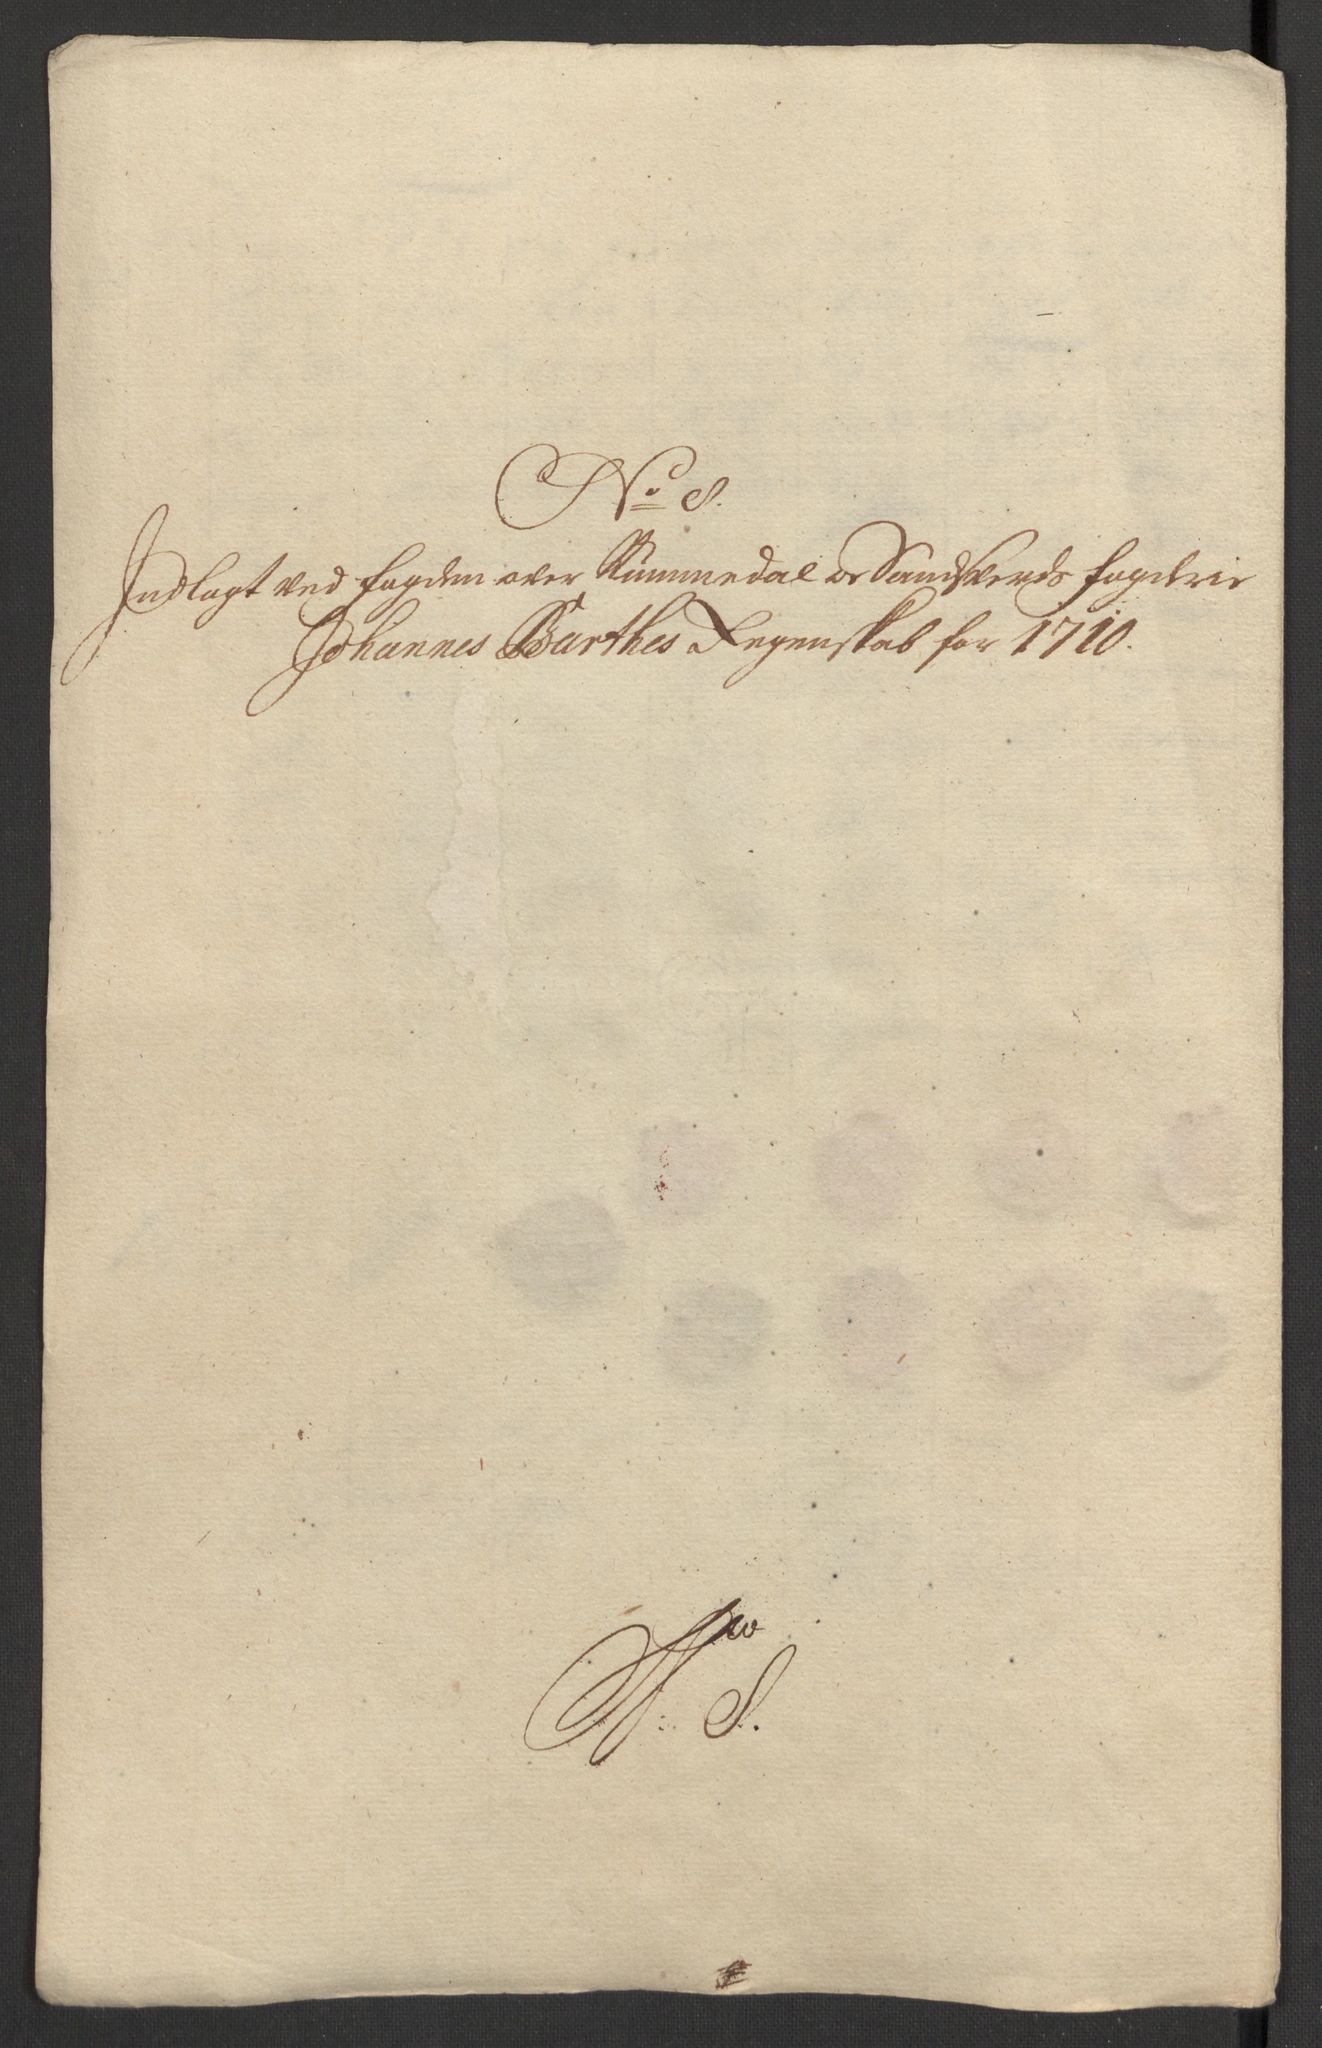 No 8.
Indlagt ved fogden over Nummedal oc Sandsverds fogderie
Johannes Barthes Regenskab for 1710.
No
8.